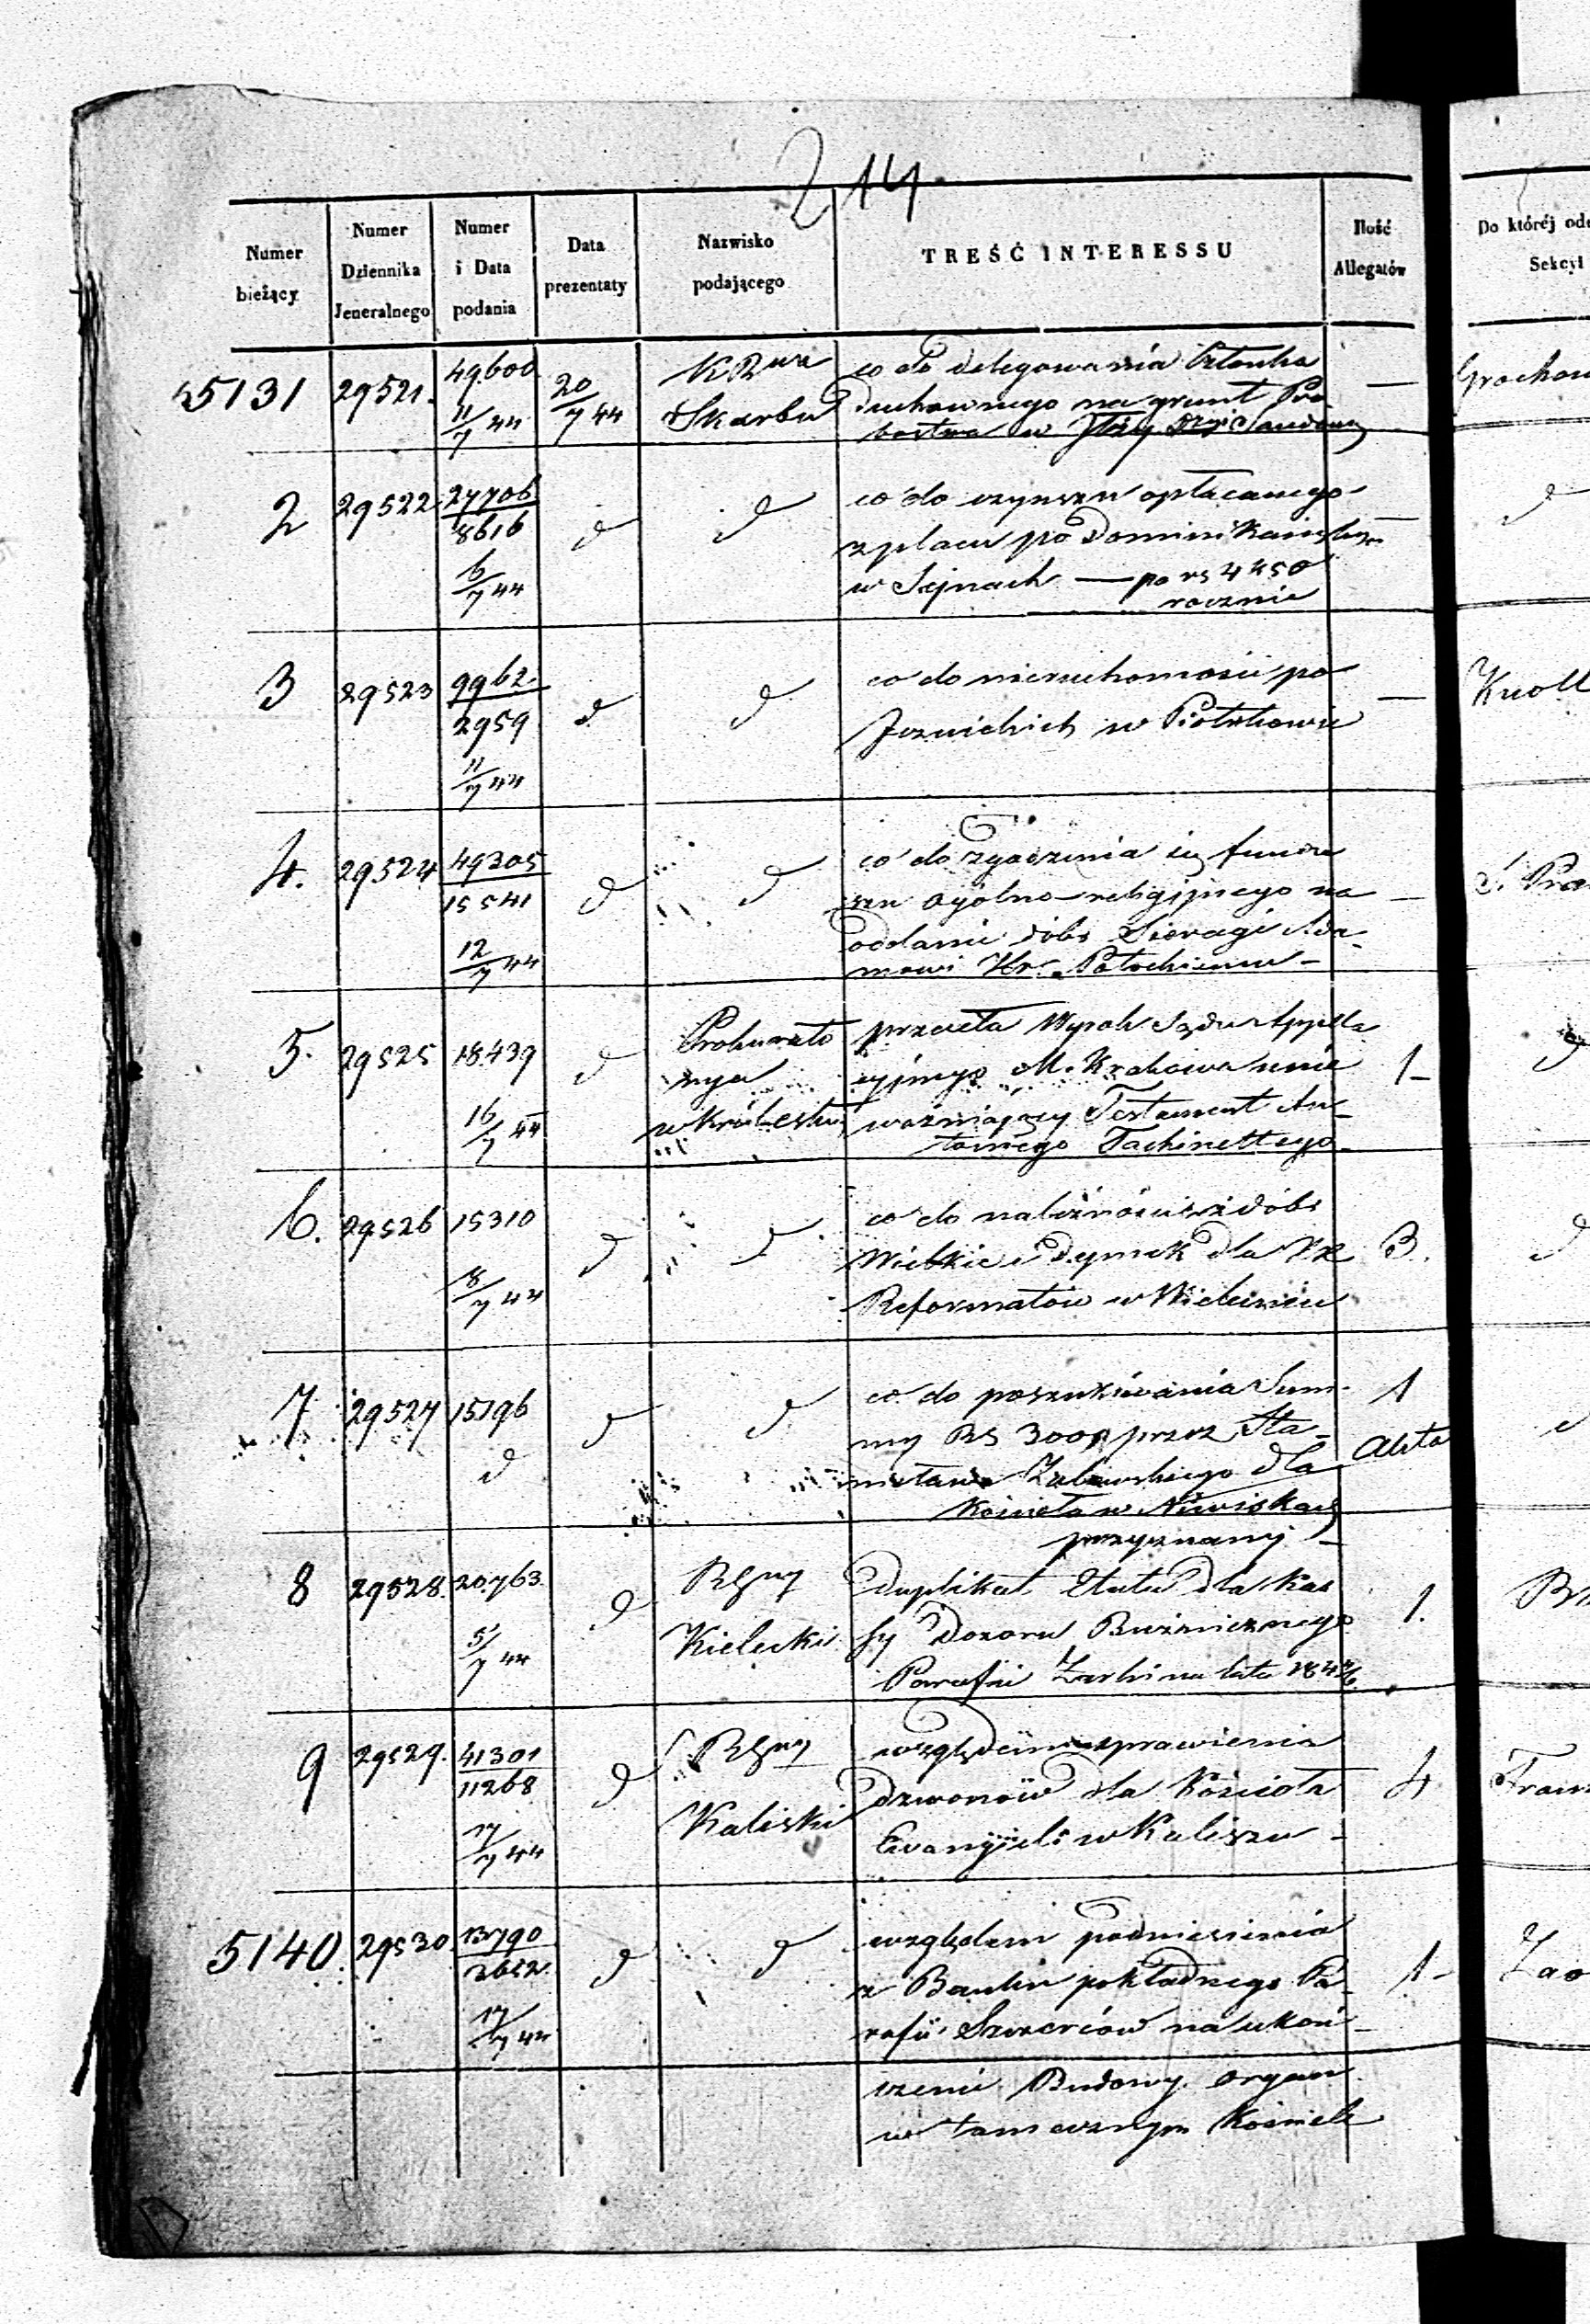 214
Numer bieżący
Numer Dziennika Jeneralnego
Numer i Data podania
Data prezentaty
Nazwisko podającego
TREŚĆ INTERESSU
Ilość Allegatów
Do któréj
Sekcyi
5131 29521. 49.600 11/7 44 20/7 44 K R Skarbu
co do delegowania Członka
Duchownego na grunt Pro
bostwa w
—
2 29522 27706/8616 6/7 44 d d
co do czynszu opłacanego
z placu po Dominikańskiego
w Sejnach — po rs 4 k 50
rocznie
—
d
3 29523 9962/2959 11/7 44 d d
co do nieruchomości po
Jezuickich w Piotrkowie
—
4. 29524 49305/15541 12/7 44 d d
co do zgodzenia się fundu
szu ogólno-religijnego na
oddanie dóbr Sieragi Ada-
mowi Hr. Potockiemu –
—
5. 29525 18.439 16/7 44 d Prokurato rya w Królestwie
przesyła Wyrok Sądu Appella
cyjnego M. Krakowa unie
ważniający Testament An-
toniego Tachinettego
1-
d
6. 29526 15310 8/7 44 d d
co do należności z dóbr
Wielkie i Dymek dla XX
Reformatów w Wieluniu
3.
d
7 29527 15196 d d d
co do poszukiwania Sum-
my RS 3000 przez Sta-
nisława Zalewskiego dla
Kościoła w Niwiskach
przyznanej –
1
Akta
8 29528. 20.763 5/7 44 d Kielecki
Duplikat Etatu dla Kas
sy Dozoru Bużniczego
Parafii Żarki na lata 184
1.
9 29529. 41301/11268 17/7 44 d Kaliski
względem sprawienia
dzwonów dla Kościoła
Ewangieli w Kaliszu –
4
5140. 29530 13790/2652 17/7 44 d d
względem podniesienia
z Banku pokładnego Pa-
rafii Szczerców na ukoń-
czenie Budowy organ
w tamecznym Kościele
1-